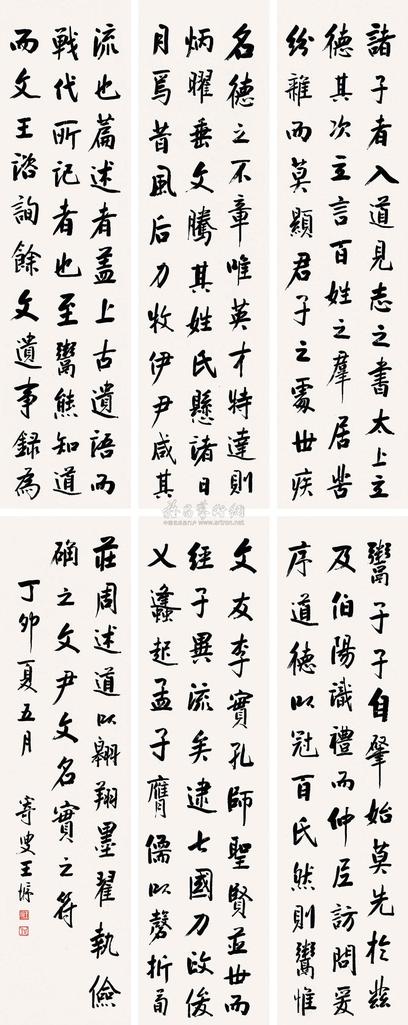 諸子者入道見志之書太上立
德其次立言百姓之羣居苦
紛雜而莫顯君子之處世疾
名德之不章唯英才特達則
炳曜垂文騰其姓氏懸諸日
月焉昔風后力牧伊尹咸其
流也篇述者蓋上古遺語而
戰代所記者也至鬻熊知道
而文王諮詢餘文遺事錄為
鬻子子自肇始莫先於茲
及伯陽識禮而仲尼訪問爰
序道德以冠百氏然則鬻惟
文友李實孔師聖賢並世而
經子異流矣逮七國力政俊
乂蠭起孟子膺儒以磬折
莊周述道以翱翔墨翟執儉
确之文尹文名實之符
丁卯夏五月
寄叟王